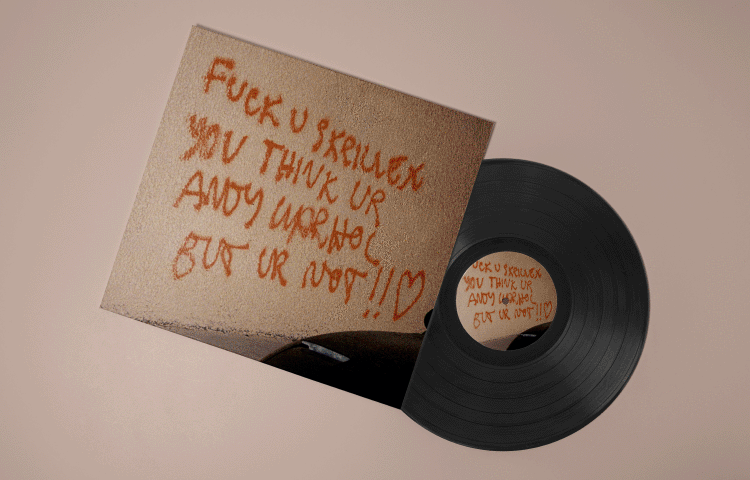 FUCK U SKRILLEX
YOU THINK UR
ANDY WARHOL
BUT UR NOT!!♡
UCK U SKRILLEX
YOU THINK UR
ANDY WARHOL
BUT UR NOT!!♡